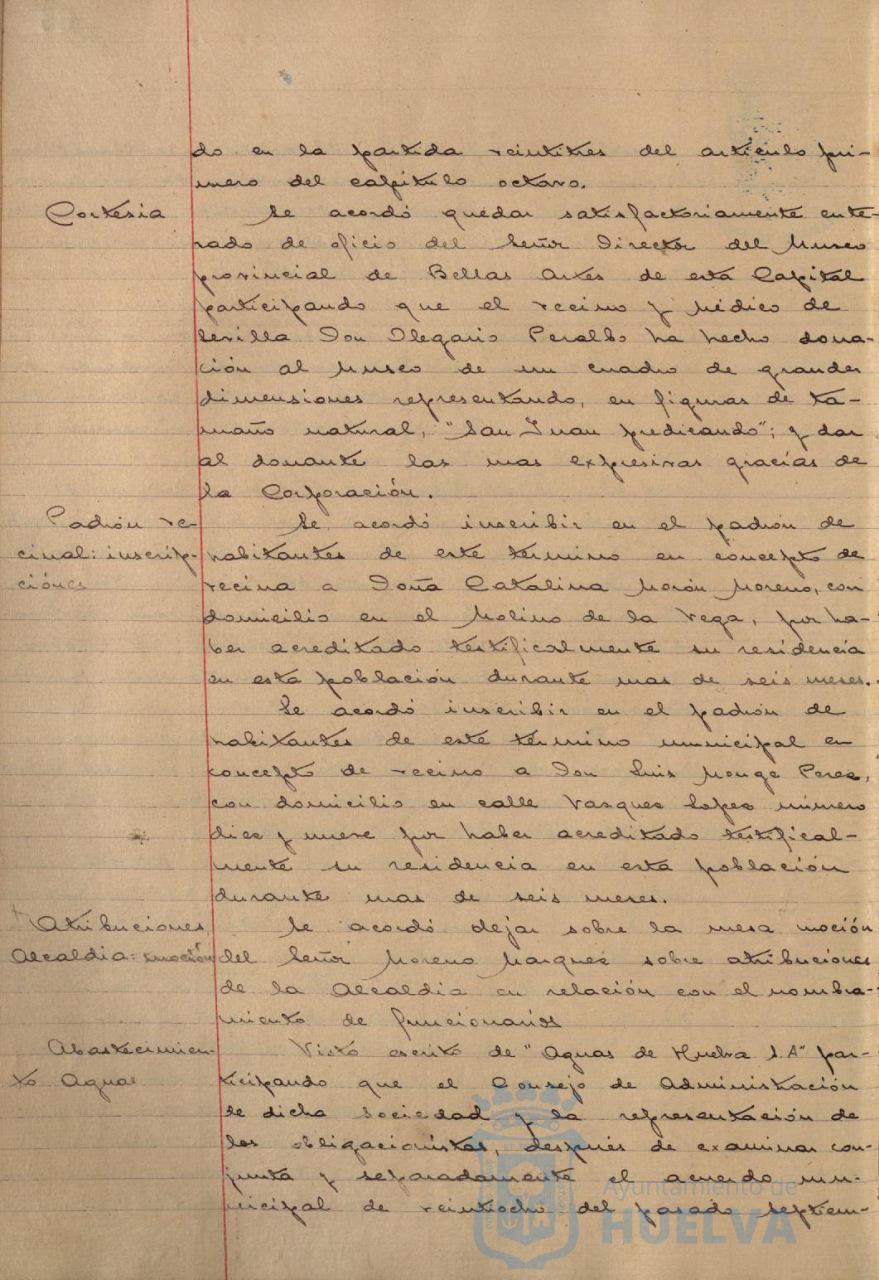 do en la partida veintitres del articulo pri-
mero del capítulo octavo.
Cortesia
Se acordó quedar satisfactoriamente ente-
rado de oficio del Señor Director del Museo
provincial de Bellas Artes de esta Capital
participando que el vecino y médico de
Sevilla Don Olegario Peralbo ha hecho dona-
ción al Museo de un cuadro de grandes
dimensiones representando, en figuras de ta-
maño natural, "San Juan predicando"; y dar
al donante las mas expresivas gracias de
la Corporación.
Padrón ve-
cinal: inscrip-
ciónes
Se acordó inscribir en el padrón de
habitantes de este término en concepto de
vecina a Doña Catalina Morón Moreno, con
domicilio en el Molino de la Vega, por ha-
ber acreditado testificalmente su residencia
en esta población durante mas de seis meses.
Se acordó inscribir en el padrón de
habitantes de este término municipal en
concepto de vecino a Don Luis Monge Perez,
con domicilio en calle Vasques Lopes número
dies y nueve por haber acreditado testifical-
mente su residencia en esta población
durante mas de seis meses.
Atribuciones
Alcaldia: moción
Se acordó dejar sobre la mesa moción
del Señor Moreno Marquez sobre atribuciones
de la Alcaldia en relación con el nombra-
miento de funcionarios
Abastecimien-
to Aguas
Visto escrito de "Aguas de Huelva S.A" par-
ticipando que el Consejo de Administración
de dicha Sociedad y la representación de
los obligacionistas, después de examinar con-
junta y separadamente el acuerdo mu-
nicipal de veintiocho del pasado Septiem-
Ayuntamiento de
HUELVA